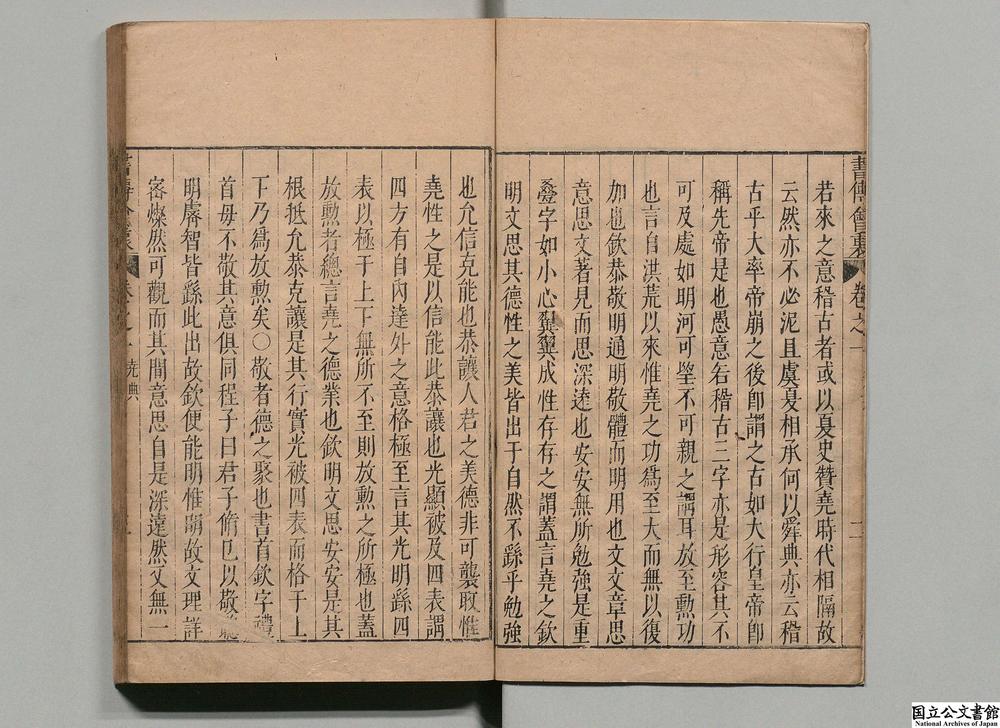 書傳會衷 卷之一
若來之意稽古者或以夏史贊堯時代相隔故
云然亦不必泥且虞夏相承何以舜典亦云稽
古乎大率帝崩之後卽謂之古如大行皇帝卽
稱先帝是也愚意若稽古三字亦是形容其不
可及處如明河可望不可親之謂耳放至勳功
也言自洪荒以來惟堯之功爲至大而無以復
加也欽恭敬明通明敬體而明用也文文章思
意思文著見而思深遠也安安無所勉強是重
疊字如小心翼翼成性存存之謂蓋言堯之欽
明文思其德性之美皆出于自然不繇乎勉強
也允信克能也恭讓人君之美德非可襲取惟
堯性之是以信能此恭讓也光顯被及四表謂
四方有自內達外之意格極至言其光明繇四
表以極于上下無所不至則放勳之所極也蓋
放勳者總言堯之德業也欽明文思安安是其
根抵允恭克讓是其行實光被四表而格于上
下乃爲放勳矣〇敬者德之聚也書首欽字禮
首毋不敬其意俱同程子曰君子脩己以敬聰
明睿智皆繇此出故欽便能明惟明故文理詳
密燦然可觀而其間意思自是深遠然又無一
書傳會衷 卷之一 堯典
国立公文書館
National Archives of Japan